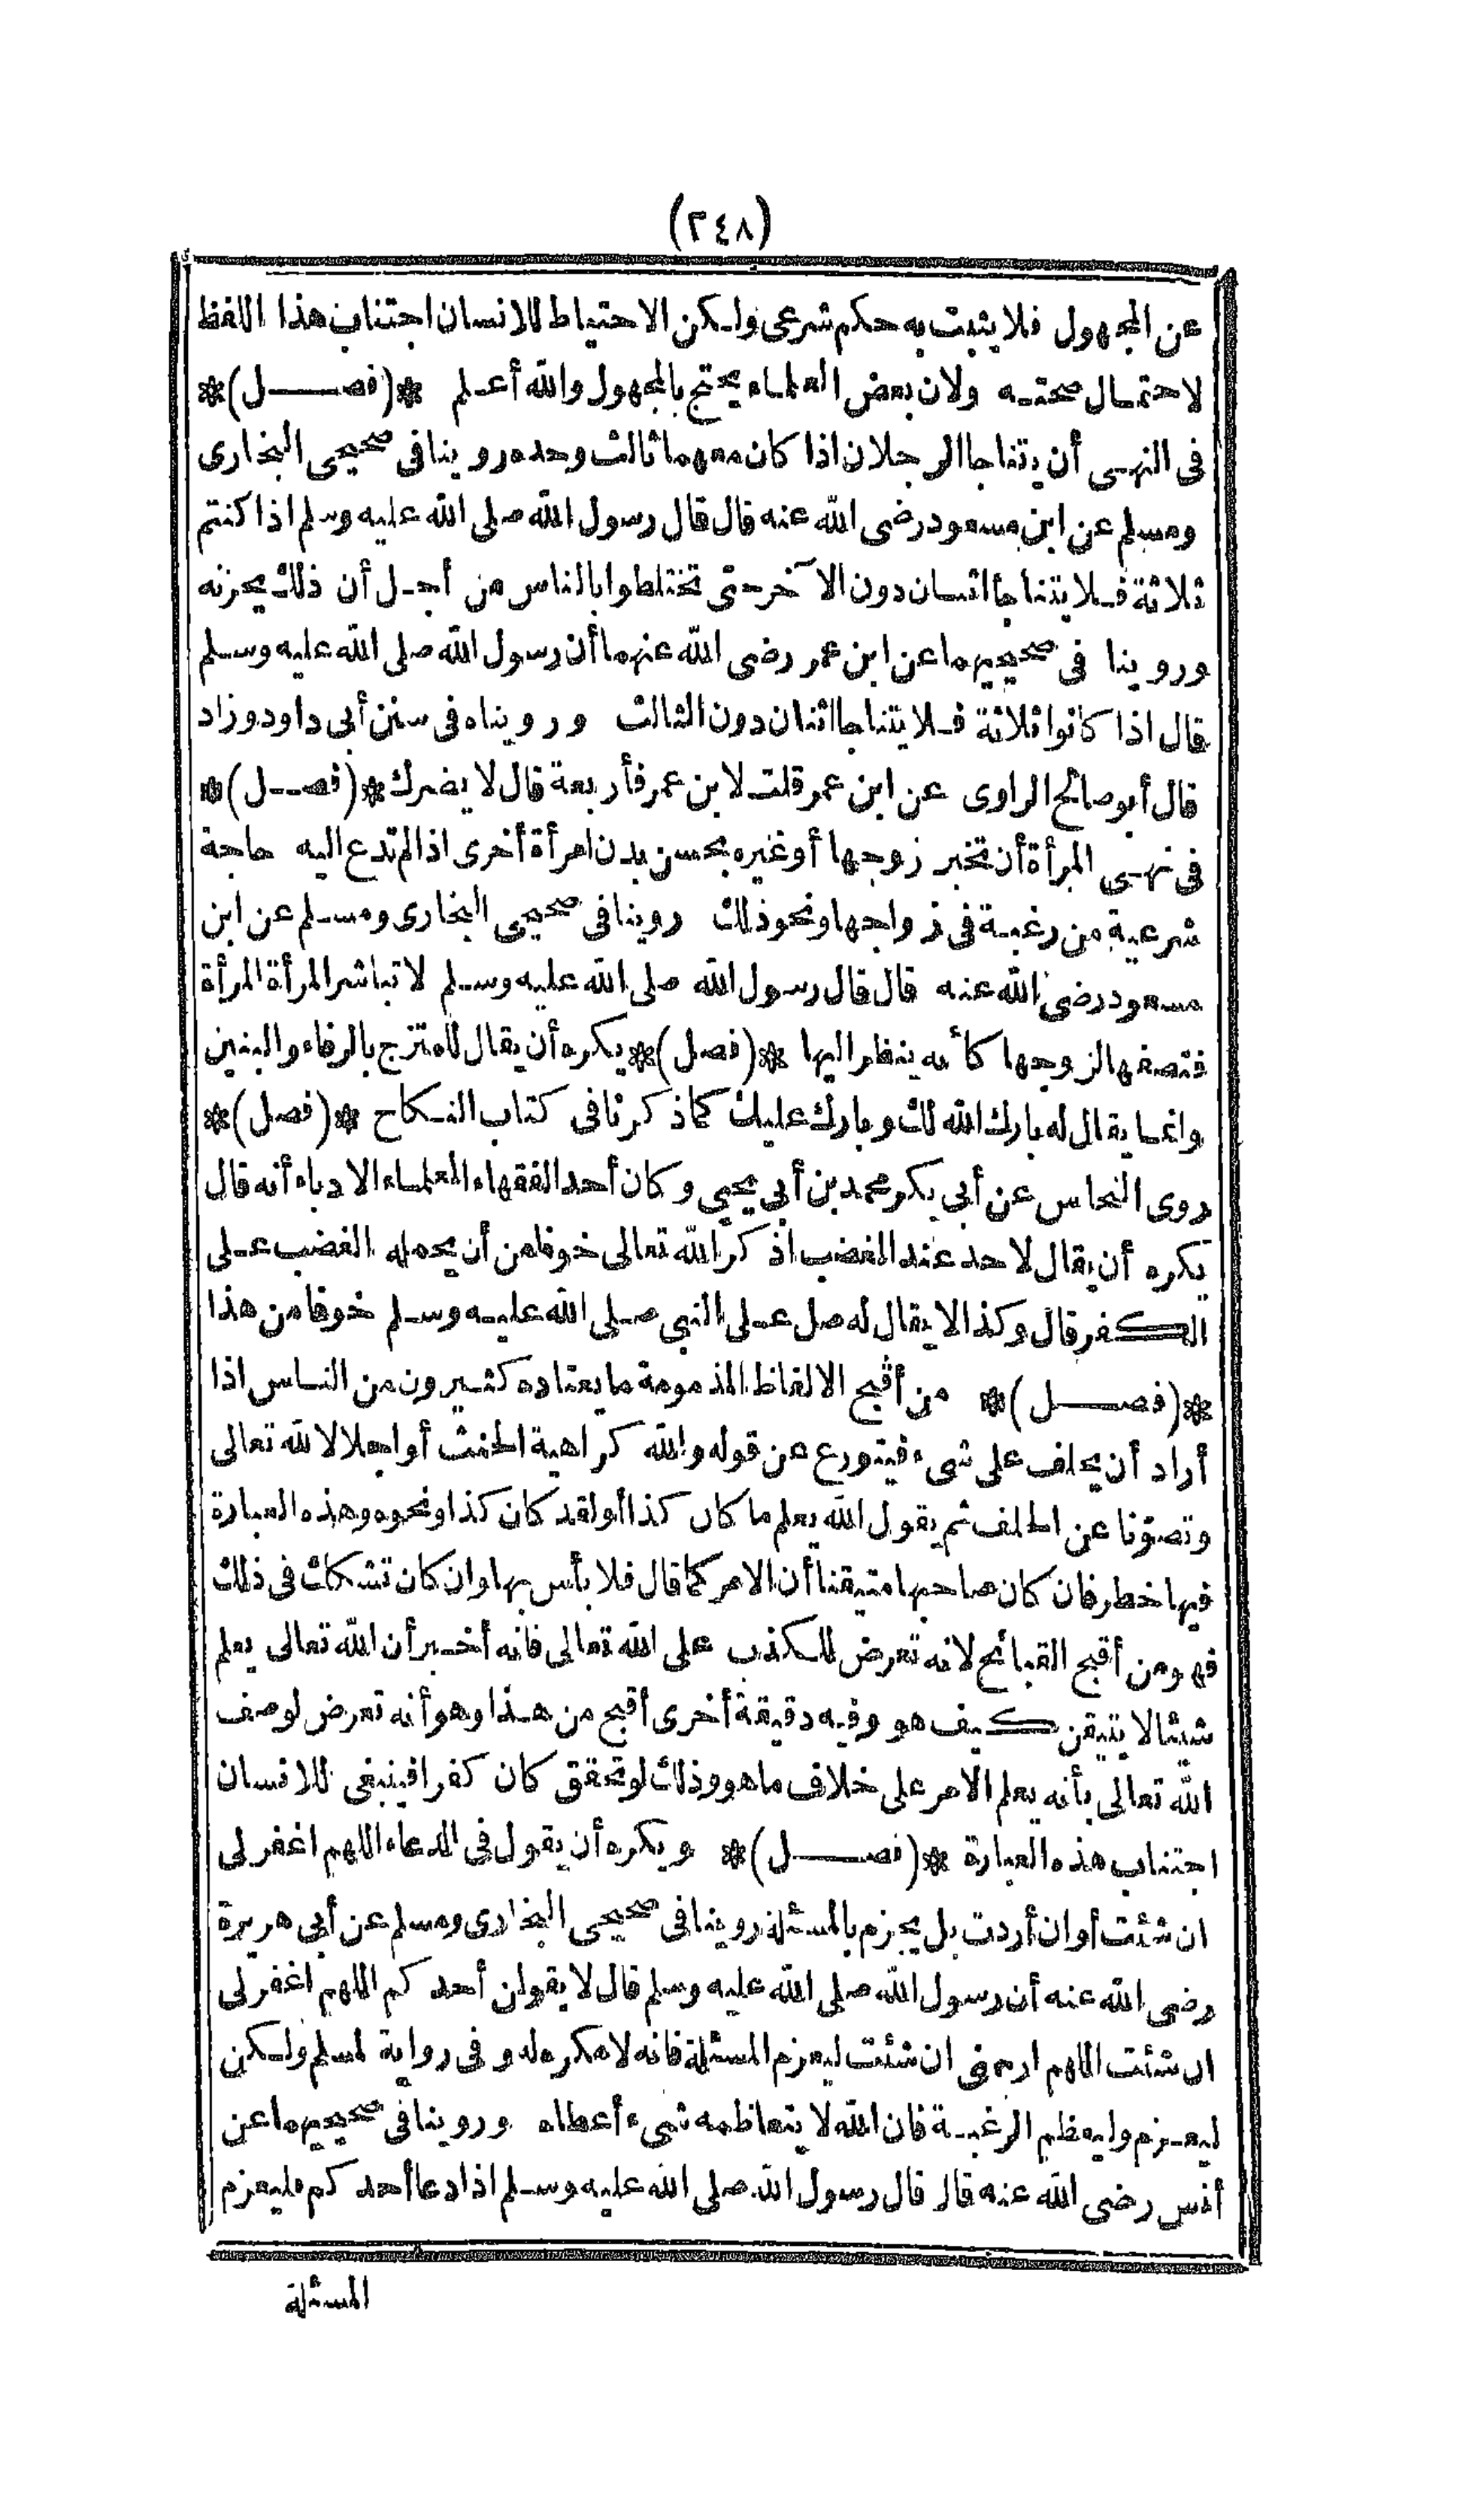 (٢٤٨)
عن المجهول فلا يثبت به حكم شرعى ولكن الاحتياط للانسان اجتناب هذا اللفظ
لاحتمال صحته ولان بعض العلماء يحتج بالمجهول والله أعلم *(فصل)*
فى النهى أن يتناجا الرجلان اذا كان معهما ثالث وحده روينا فى صحيحى البخارى
ومسلم عن ابن مسعود رضى الله عنه قال قال رسول الله صلى الله عليه وسلم اذا كنتم
ثلاثة فلا يتناجا اثنان دون الآخر حتى تختلطوا بالناس من أجل أن ذلك يحزنه
وروينا فى صحيحيهما عن ابن عمر رضى الله عنهما أن رسول الله صلى الله عليه وسلم
قال اذا كانوا ثلاثة فلا يتناجا اثنان دون الثالث ورويناه فى سنن أبى داود وزاد
قال أبو صالح الراوى عن ابن عمر قلت لابن عمر فأربعة قال لا يضرك *(فصل)*
فى نهى المرأة أن تخبر زوجها أو غيره بحسن بدن امرأة أخرى اذا لم تدع اليه حاجة
شرعية من رغبة فى زواجها ونحو ذلك روينا فى صحيحى البخارى ومسلم عن ابن
مسعود رضى الله عنه قال قال رسول الله صلى الله عليه وسلم لا تباشر المرأة المرأة
فتصفها لزوجها كأنه ينظر اليها *(فصل)* يكره أن يقال للمتزوج بالرفاء والبنين
وانما يقال له بارك الله لك وبارك عليك كما ذكرنا فى كتاب النكاح *(فصل)*
روى النحاس عن أبى بكر محمد بن أبى يحيى وكان أحد الفقهاء العلماء الادباء أنه قال
يكره أن يقال لاحد عند الغضب اذكر الله تعالى خوفا من أن يحمله الغضب على
الكفر قال وكذا لا يقال له صل على النبى صلى الله عليه وسلم خوفا من هذا
*(فصل)* من أقبح الالفاظ المذمومة ما يعتاده كثيرون من الناس اذا
أراد أن يحلف على شىء فيتورع عن قوله والله كراهية الحنث أو اجلالا لله تعالى
وتصونا عن الحلف ثم يقول الله يعلم ما كان كذا أو لقد كان كذا ونحوه وهذه العبارة
فيها خطر فان كان صاحبها متيقنا أن الامر كما قال فلا بأس بها وان كان تشكك فى ذلك
فهو من أقبح القبائح لانه تعرض للكذب على الله تعالى فانه أخبر أن الله تعالى يعلم
شيئا لا يتيقن كيف هو وفيه دقيقة أخرى أقبح من هذا وهو أنه تعرض لوصف
الله تعالى بأنه يعلم الامر على خلاف ما هو وذلك لو تحقق كان كفرا فينبغى للانسان
اجتناب هذه العبارة *(فصل)* ويكره أن يقول فى الدعاء اللهم اغفر لى
ان شئت أو ان أردت بل يجزم بالمسئلة روينا فى صحيحى البخارى ومسلم عن أبى هريرة
رضى الله عنه أن رسول الله صلى الله عليه وسلم قال لا يقولن أحدكم اللهم اغفر لى
ان شئت اللهم ارحمنى ان شئت ليعزم المسئلة فانه لا مكره له وفى رواية لمسلم ولكن
ليعزم وليعظم الرغبة فان الله لا يتعاظمه شىء أعطاه وروينا فى صحيحيهما عن
أنس رضى الله عنه قال قال رسول الله صلى الله عليه وسلم اذا دعا أحدكم فليعزم
المسئلة